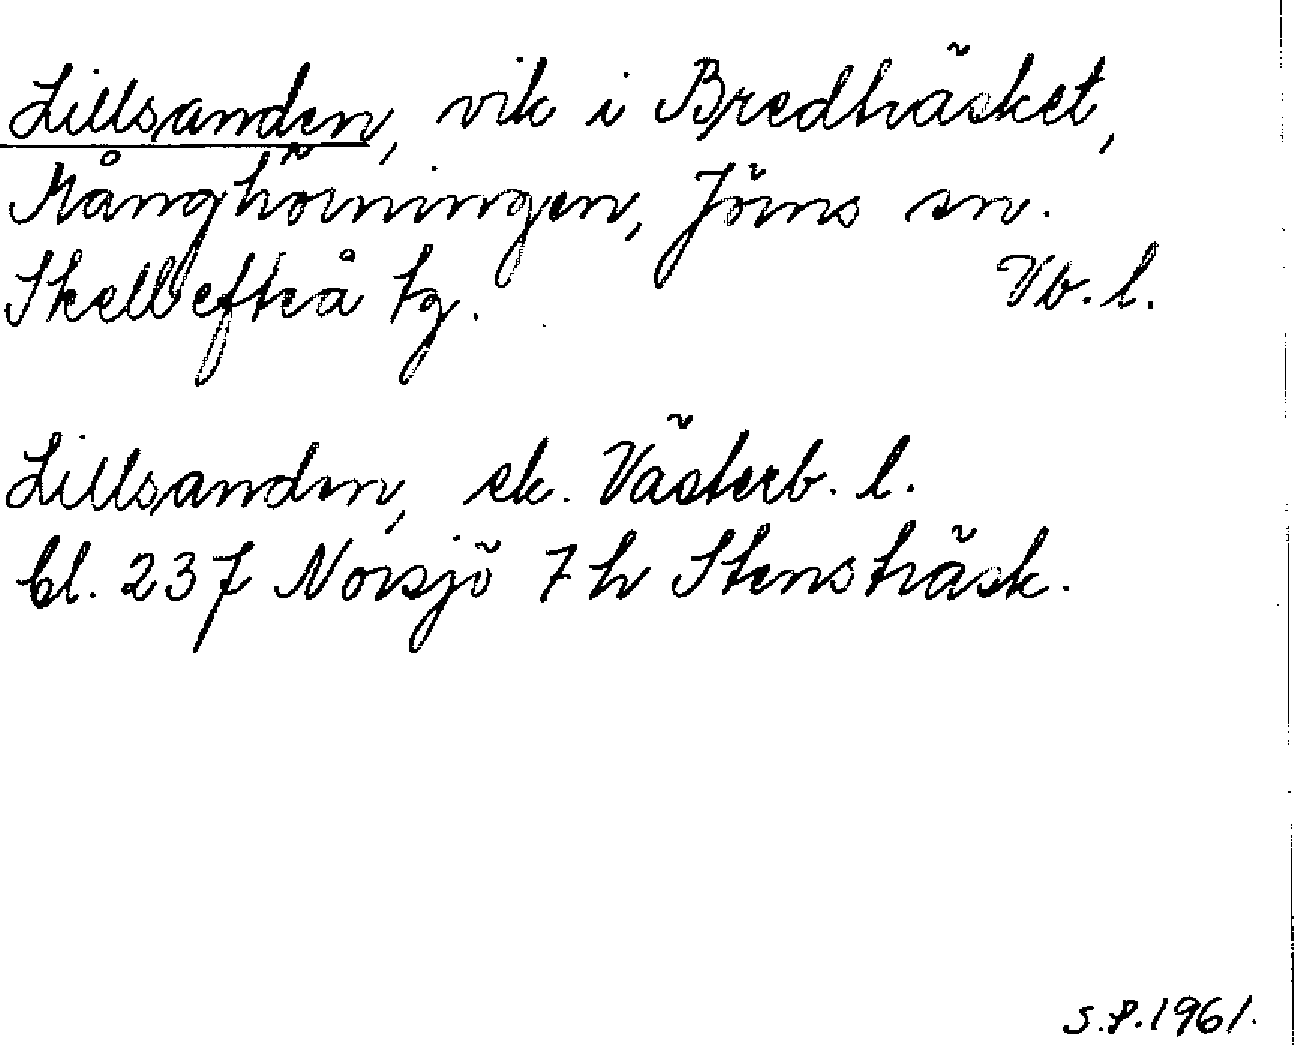 Lillsanden, vik i Bredträsket,
Månghörningen, Jörns sn.
Skellefteå tg. Vb. l.
Lillsanden, ek. Västerb. l.
bl. 237 Norsjö 7 h Stensträsk.
S.P. 1961.